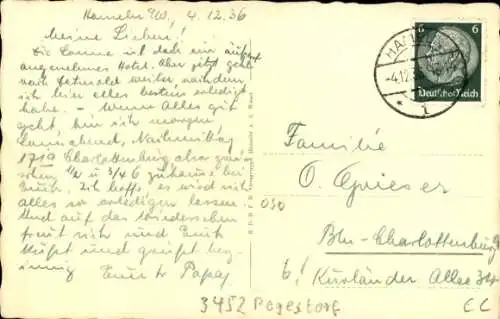 Hameln W., 4.12.36
Meine Lieben!
Die Sonne ist doch ein äußerst
angenehmes Hotel. Aber jetzt geht's
nach Detmold weiter nachdem
ich hier alles bestens erledigt
habe. – Wenn Alles gut
geht, bin ich morgen
Sonnabend, Nachmittag
1719 Charlottenburg also zwischen
1/2 u 3/4 6 zuhause bei
Euch. Ich hoffe, es wird sich
alles so erledigen lassen.
Und auf das Wiedersehen
freut sich und Euch
küßt und grüßt
innig Euer Papa
6
6
Deutsches Reich
HAMELN
-4.12.36
* 1
Familie
O. Grieser
Bln-Charlottenburg 9
Kurländer Allee 34
050
3452 Pegestorf
CC